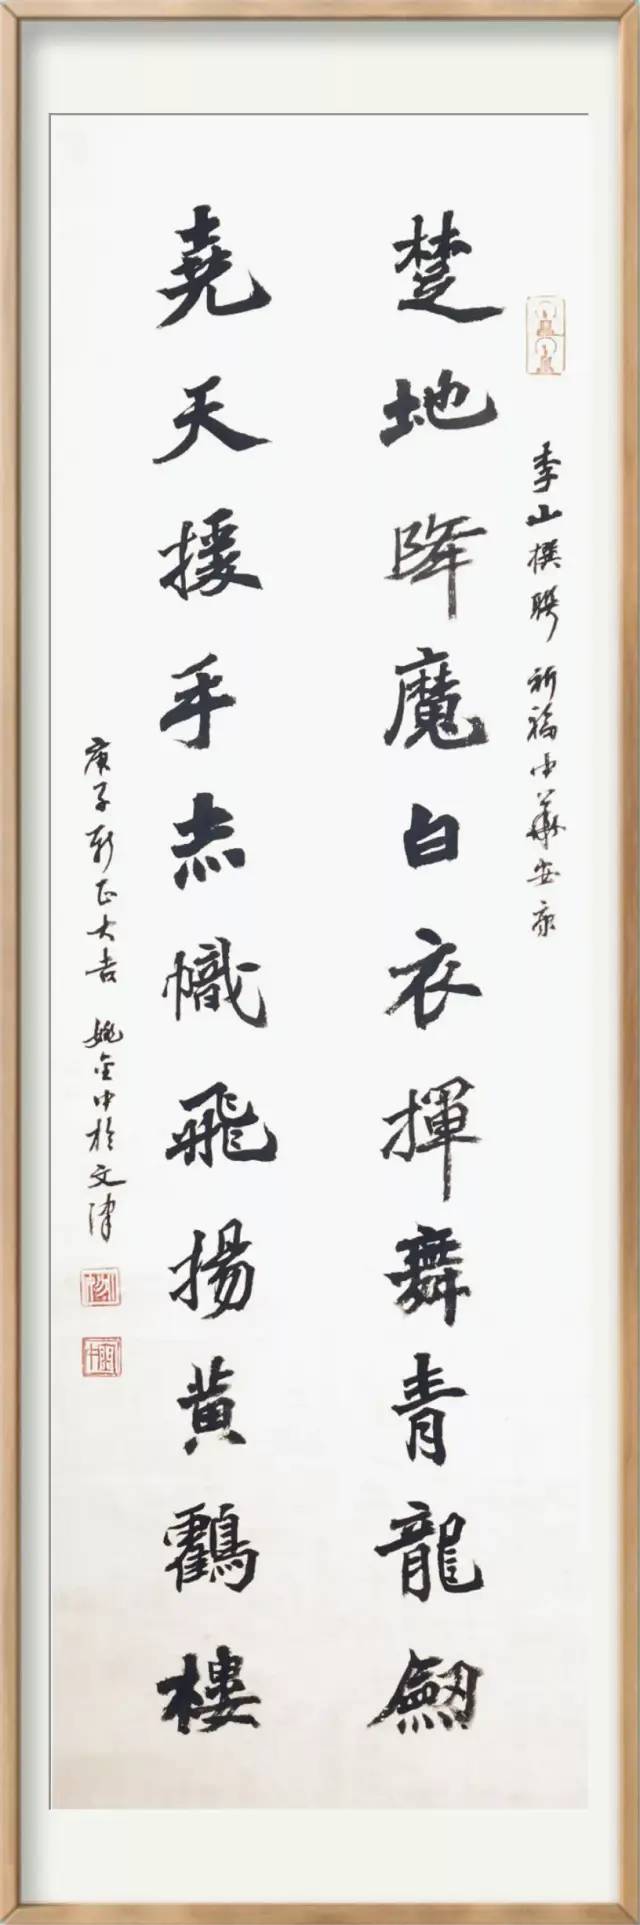 季山撰聯 祈福中華安康
楚地降魔白衣揮舞青龍劔
堯天援手赤幟飛揚黄鸖樓
庚子新正大吉 姚金中於文津